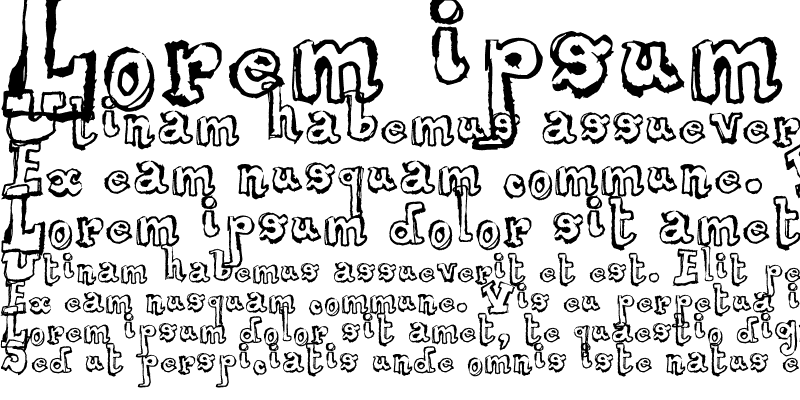 Lorem ipsum
Utinam habemus assuever
Ex eam nusquam commune.
Lorem ipsum dolor sit amet
Utinam habemus assueverit et est. Elit pe
Ex eam nusquam commune. Vis eu perpetua i
Lorem ipsum dolor sit amet, te quaestio dig
Sed ut perspiciatis unde omnis iste natus e